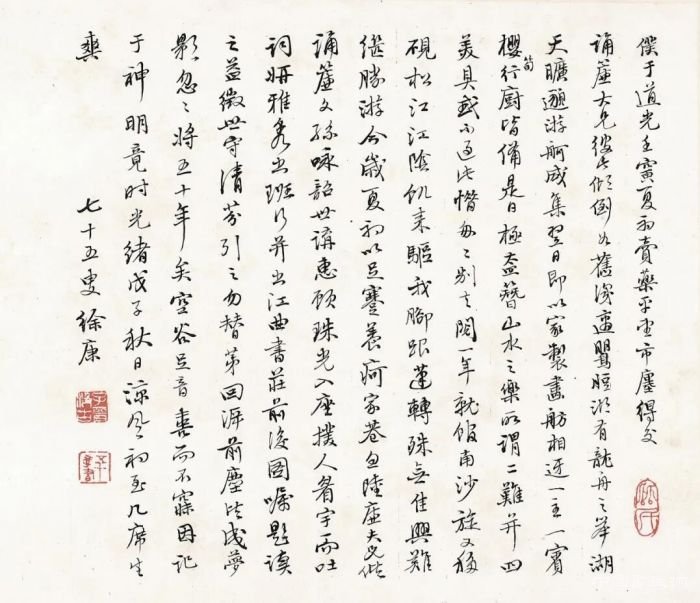 僕于道光壬寅夏初賣藥平望市廛得交
誦廉大兄彼此傾倒如舊湥適鶯脰湖有龍舟之舉湖
天曠邈游舸咸集翌日即以家製畫舫相迓一主一賓
櫻筍行廚皆備是日極盍簪山水之樂所謂二難并四
美具無不過此惜匆匆別去閱一年就館南沙旋又移
硯松江江陰飢來驅我腳跟蓬轉殊無佳興難
繼勝游今歲夏初以足蹇養疴家巷忽陸廉夫兄偕
誦廉文孫咏韶世講惠顧珠光入座撲人眉宇而吐
詞妍雅秀出班行并出江曲書莊前後圖囑題讀
之益徵世守清芬引之勿替第回溯前塵皆成夢
影忽忽將五十年矣空谷足音喜而不寐因記
于神明竟時光緒戊子秋日涼風初至几席生
爽
七十五叟徐康